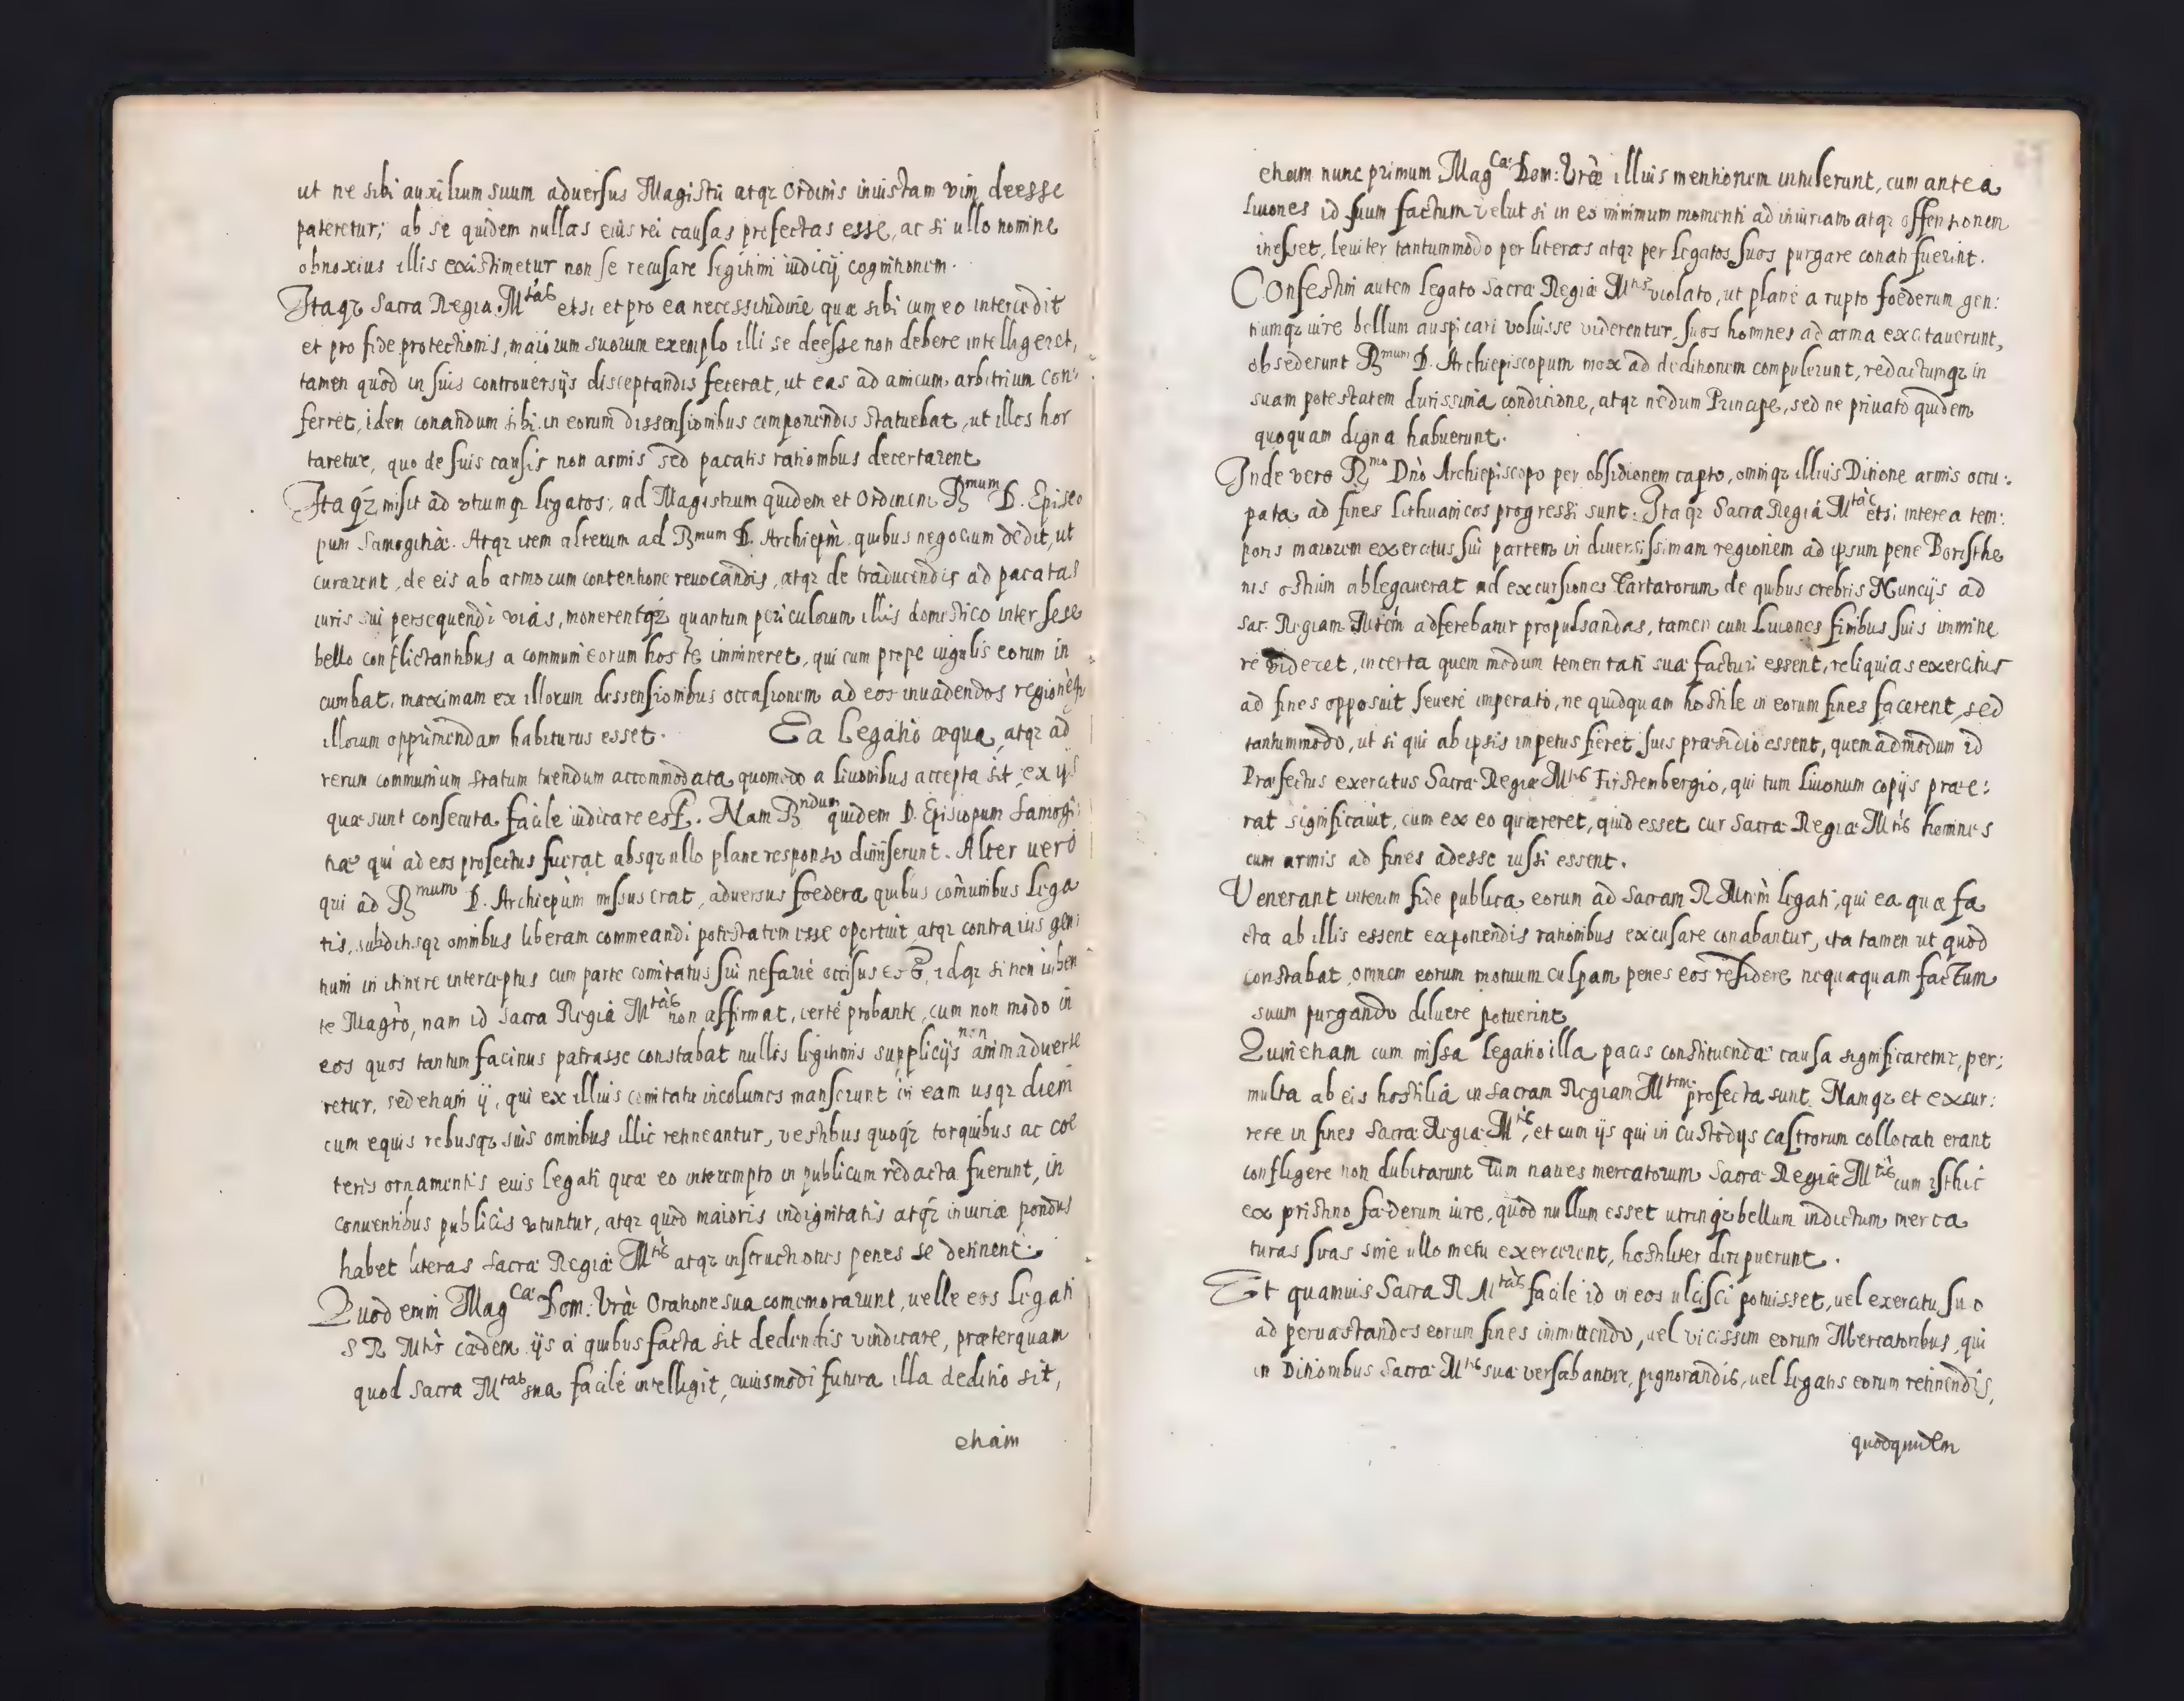 ut ne sibi auxilium suum adversus Magistri atqz Ordinis iniustam vim deesse
pateretur; ab se quidem nullas eius rei causas profectas esse, ac si ullo nomine
obnoxius illis existimetur non se recusare legitimi iudicij cognitionem.
Itaqz Sacra Regia Mtas etsi et pro ea necessitudine quæ sibi cum eo intercedit
et pro fide protectionis, maiorum suorum exemplo illi se deesse non debere intelligeret,
tamen quod in suis controversijs disceptandis fecerat, ut eas ad amicum arbitrium con:
ferret, idem conandum sibi in eorum dissensionibus componendis statuebat, ut illos hor
taretur, quo de suis causis non armis sed pacatis rationibus decertarent
Itaqz misit ad utrumqz legatos; ad Magistrum quidem et Ordinem Rmum D. Episco
pum Samogitiæ. Atqz item alterum ad Rmum D. Archiepm quibus negocium dedit, ut
curarent, de eis ab armorum contentione revocandis, atqz de traducendis ad pacatas
iuris sui persequendi vias, monerentqz quantum periculorum illis domestico inter sese
bello conflictantibus a communi eorum hoste immineret, qui cum prope iugulis eorum in
cumbat, maximam ex illorum dissensionibus occasionem ad eos invadendos regionēqz
illorum opprimendam habiturus esset. Ea Legatio æqua, atqz ad
rerum communium statum tuendum accommodata quomodo a livonibus accepta sit, ex ijs
quæ sunt consecuta facile iudicare est. Nam Rndum quidem D. Episcopum Samogi:
tiæ qui ad eos profectus fuerat absqz ullo plane responso dimiserunt. Alter vero
qui ad Rmum D. Archiepūm missus erat, adversus foedera quibus comūnibus lega
tis, subditisqz omnibus liberam commeandi potestatem esse oportuit, atqz contra ius gen:
tium in itinere interceptus cum parte comitatus sui nefarie occisus est, idqz si non iuben
te Magrō, nam id Sacra Regia Mtas non affirmat, certe probante, cum non modo in
eos quos tantum facinus patrasse constabat nullis legitimis supplicijs non animadverte
retur, sed etiam ij, qui ex illius comitatu incolumes manserunt in eam usqz diem
cum equis rebusqz suis omnibus illic retineantur, vestibus quoqz torquibus ac coe
teris ornamentis eius Legati quæ eo interempto in publicum redacta fuerunt, in
conventibus publicis utuntur, atqz quod maioris indignitatis atqz iniuriæ pondus
habet literas Sacræ Regiæ Mtis atqz instructiones penes se detinent.
Quod enim Magcæ Dom: Vræ Oratione sua comemorarunt, velle eos Legati
S R Mtis cædem ijs a quibus facta sit dedentis vindicare, præterquam
quod Sacra Mtas sua facile intelligit, cuiusmodi futura illa deditio sit,
etiam
etiam nunc primum Magcæ Dom: Vræ illius mentionem intulerunt, cum antea
Livones id suum factum velut si in eo minimum momenti ad iniuriam atqz offensionem
inesset, leviter tantummodo per literas atqz per legatos suos purgare conati fuerint.
Confestim autem legato Sacræ Regiæ Mtis violato, ut plane a rupto foederum gen:
tiumqz iure bellum auspicari voluisse viderentur, suos homines ad arma excitaverunt,
obsederunt Rmum D. Archiepiscopum mox ad deditionem compulerunt, redactumqz in
suam potestatem durissima condicione, atqz nedum Principe, sed ne privato quidem
quoquam digna habuerunt.
Inde vero Rmo Dno Archiepiscopo per obsidionem capto, omniqz illius Ditione armis occu:
pata ad fines Lithuanicos progressi sunt. Itaqz Sacra Regia Mtas etsi interea tem:
poris maiorem exercitus sui partem in diversissimam regionem ad ipsum pene Boristhe
nis ostium ablegaverat ad excursiones Tartarorum de quibus crebris Nuncijs ad
Sac. Regiam Mtem adferebatur propulsandas, tamen cum Livones finibus suis immine
re videret, incerta quem modum temeritati suæ facturi essent, reliquias exercitus
ad fines opposuit severe imperato, ne quidquam hostile in eorum fines facerent, sed
tantummodo, ut si qui ab ipsis impetus fieret suis præsidio essent, quemadmodum id
Præfectus exercitus Sacræ Regiæ Mtis Firstembergio, qui tum Livonum copijs præe:
rat significavit, cum ex eo quæreret, quid esset cur Sacræ Regiæ Mtis homines
cum armis ad fines adesse iussi essent.
Venerant interim fide publica eorum ad Sacram R Mtem legati, qui ea quæ fa
cta ab illis essent exponendis rationibus excusare conabantur, ita tamen ut quod
constabat, omnem eorum motuum culpam penes eos residere nequaquam factum
suum purgando diluere potuerint
Quin etiam cum missa legatio illa pacis constituendæ causa significaretur, per:
multa ab eis hostilia in Sacram Regiam Mtem profecta sunt. Namqz et excur:
rere in fines Sacræ Regiæ Mtis, et cum ijs qui in custodijs castrorum collocati erant
confligere non dubitarunt Tum naves mercatorum Sacræ Regiæ Mtis cum isthic
ex pristino fæderum iure, quod nullum esset utrinqz bellum indictum merca
turas suas sine ullo metu exercerent, hostiliter diripuerunt.
Et quamvis Sacra R Mtas facile id in eos ulcisci potuisset, vel exercitu suo
ad pervastandos eorum fines immittendo, vel vicissim eorum Mercatoribus, qui
in Ditionibus Sacræ Mtis suæ versabantur, pignorandis, vel legatis eorum retinendis,
quodquidem